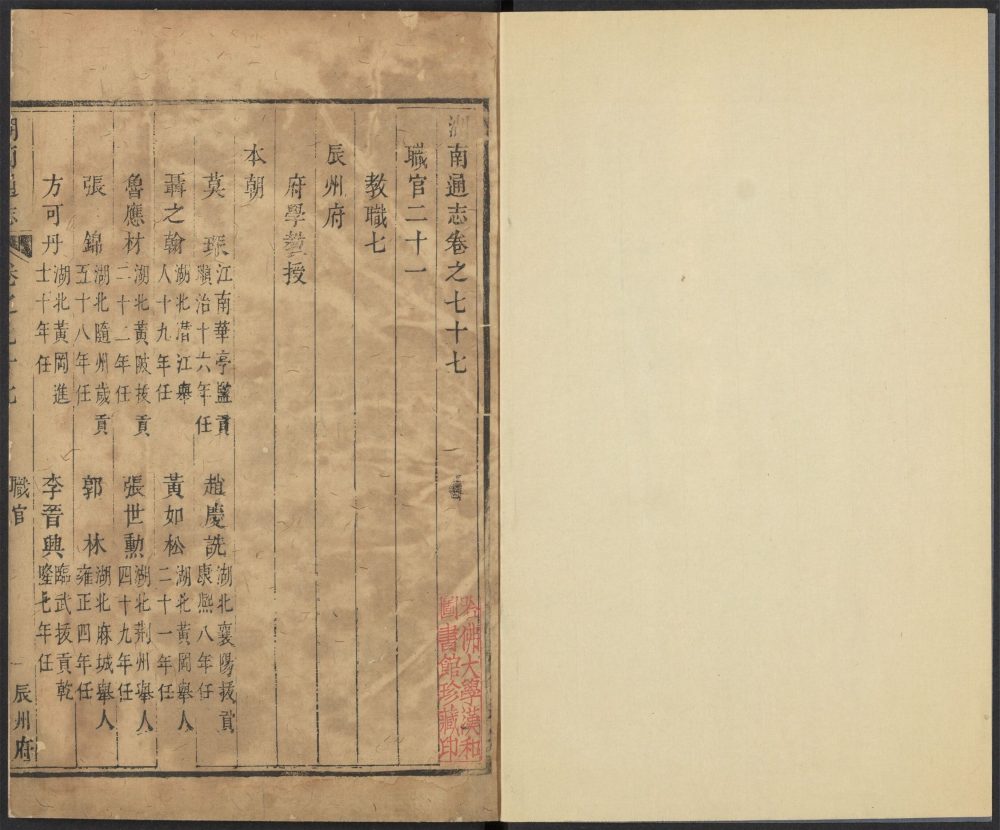 湖南通志卷之七十七
職官二十一
教職七
辰州府
府學教授
本朝
莫 琛 江南華亭監貢順治十六年任 趙慶詵 湖北襄陽拔貢康熙八年任
聶之翰 湖北潛江舉人十九年任 黃如松 湖北黃岡舉人二十一年任
魯應材 湖北黃陂拔貢二十二年任 張世勳 湖北荊州舉人四十九年任
張 錦 湖北隨州歲貢五十八年任 郭 林 湖北麻城舉人雍正四年任
方可丹 湖北黃岡進士十年任 李晉興 臨武拔貢乾隆七年任
湖南通志 卷之七十七 職官 一 辰州府
哈佛大學漢和
圖書館珍藏印